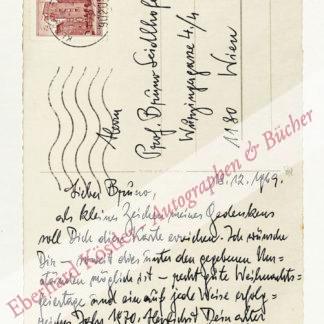 Herrn
Prof. Bruno Seidlhofer
Weinzingergasse 4/4
1180 Wien
13. 12. 1969.
Lieber Bruno,
als kleines Zeichen meines Gedenkens
soll Dich diese Karte erreichen. Ich wünsche
Dir – soweit dies unter den gegebenen Um-
ständen möglich ist – recht gute Weihnachts-
feiertage und ein auf jede Weise erfolg-
reiches Jahr 1970. Herzlichst Dein alter
Eberhard Köstler Autographen & Bücher